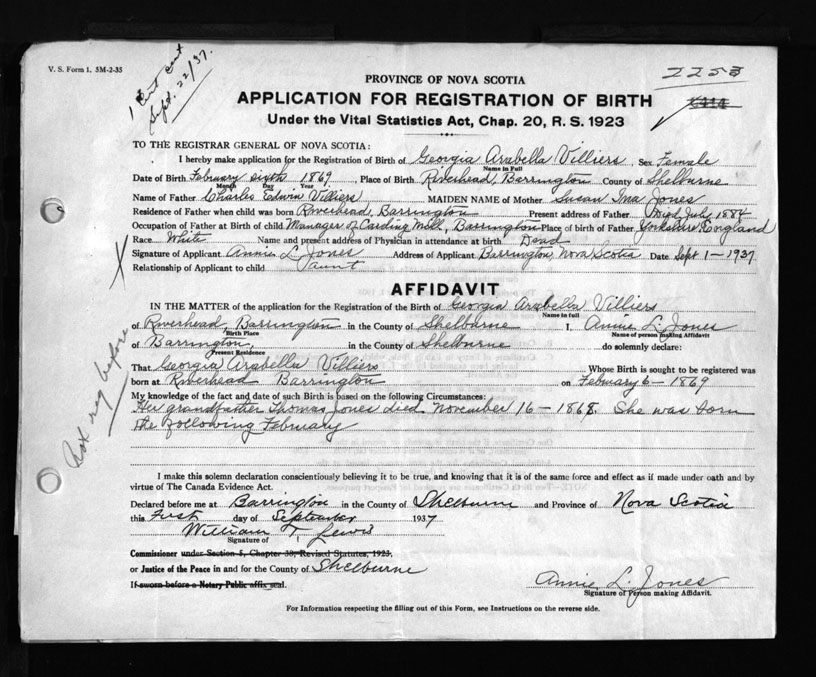 V. S. Form 1. 5M-2-35
1 Cert sent
Sept. 22/37.
2253
PROVINCE OF NOVA SCOTIA
APPLICATION FOR REGISTRATION OF BIRTH
Under the Vital Statistics Act, Chap. 20, R. S. 1923
TO THE REGISTRAR GENERAL OF NOVA SCOTIA:
I hereby make application for the Registration of Birth of Georgia Arabella Villiers Sex Female
Name in Full
Date of Birth February sixth 1869 Place of Birth Riverhead, Barrington County of Shelburne
Month Day Year
Name of Father Charles Edwin Villiers MAIDEN NAME of Mother Susan Ina Jones
Residence of Father when child was born Riverhead, Barrington Present address of Father Died July 1884
Occupation of Father at Birth of child Manager of Carding Mill, Barrington Place of birth of Father Yorkshire England
Race White Name and present address of Physician in attendance at birth Dead
Signature of Applicant Annie L. Jones Address of Applicant Barrington, Nova Scotia Date Sept 1-1937
Relationship of Applicant to child aunt
AFFIDAVIT
IN THE MATTER of the application for the Registration of the Birth of Georgia Arabella Villiers
Name in full
of Riverhead, Barrington in the County of Shelburne I, Annie L. Jones
Birth Place Name of person making Affidavit
of Barrington, in the County of Shelburne do solemnly declare:
Present Residence
That Georgia Arabella Villiers Whose Birth is sought to be registered was
born at Riverhead Barrington on February 6-1869
My knowledge of the fact and date of such Birth is based on the following Circumstances:
Her grandfather Thomas Jones died November 16-1868. She was born
the following February
Not reg before
I make this solemn declaration conscientiously believing it to be true, and knowing that it is of the same force and effect as if made under oath and by
virtue of The Canada Evidence Act.
Declared before me at Barrington in the County of Shelburne and Province of Nova Scotia
this first day of September 1937
William T. Lewis
Signature of
Commissioner under Section 5, Chapter 38, Revised Statutes, 1923,
or Justice of the Peace in and for the County of Shelburne
If sworn before a Notary Public affix seal.
Annie L. Jones
Signature of Person making Affidavit.
For Information respecting the filling out of this Form, see Instructions on the reverse side.